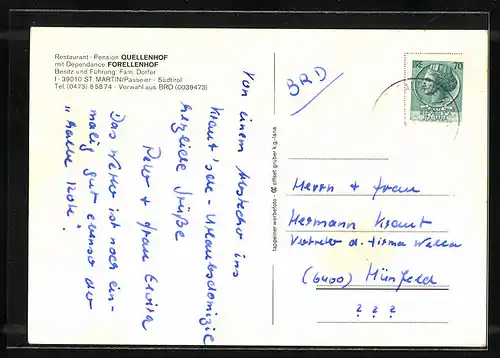 Restaurant · Pension QUELLENHOF
mit Dependance FORELLENHOF
Besitz und Führung: Fam. Dorfer
I - 39010 ST. MARTIN/Passeier - Südtirol
Tel. (0473) 85874 · Vorwahl aus BRD (0039473)
Von einem Abstecher ins
Kraut'sche - Urlaubsdomizil
herzliche Grüße
Peter + Frau Elvira
Das Wetter ist noch ein-
malig gut ebenso der
"halbe Rote"!
tappeiner werbefoto · offset gruber k.g. lana
BRD
70
Herrn + Frau
Hermann Kraut
Vertreter d. Firma
(6400) Hünfeld
? ? ?